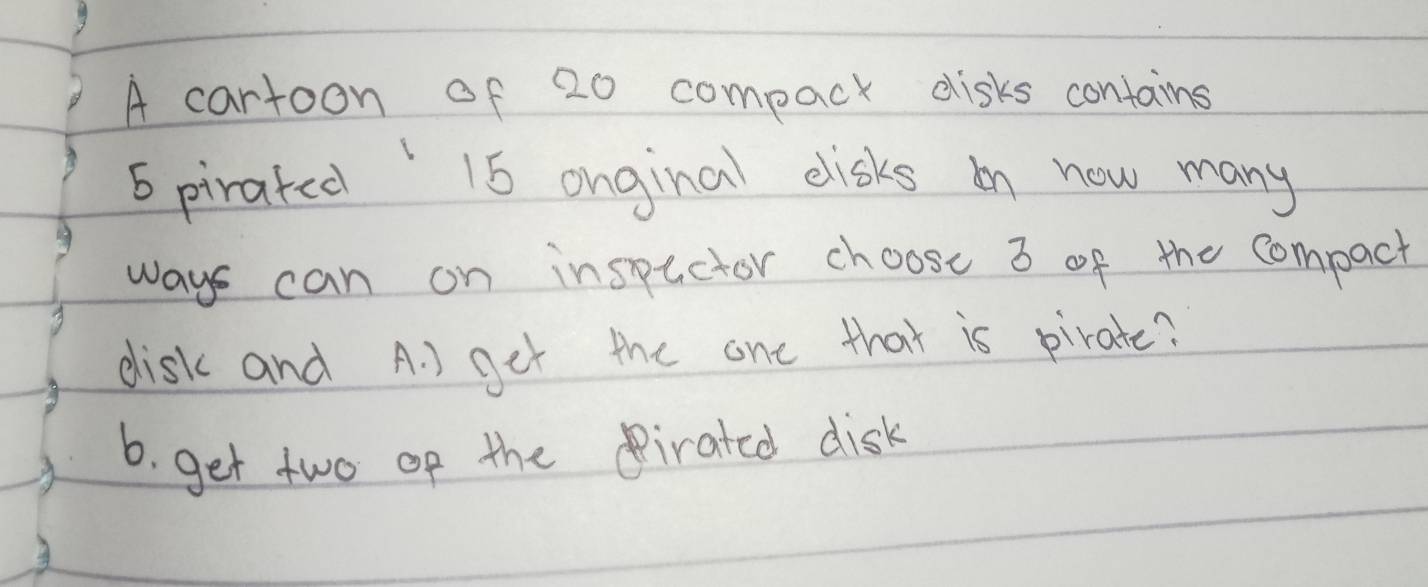 A cartoon of 20 compact disks contains
5 pirated ' 15 onginal disks in how many
ways can on inspector choose 3 of the compact
disk and A.) get the one that is pirate?
b. get two of the Pirated disk